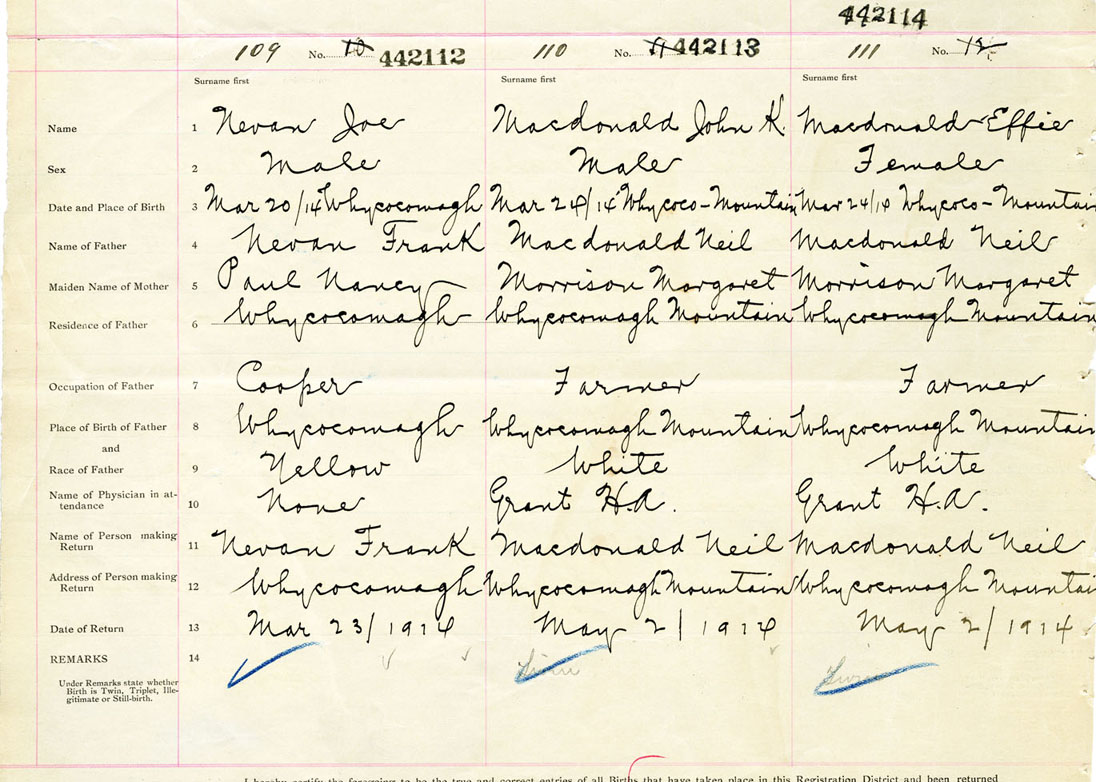 442114
109 No. 10 442112 110 No. 11 442113 111 No. 12
Surname first Surname first Surname first
Name 1 Nevan Joe Macdonald John K. Macdonald Effie
Sex 2 Male Male Female
Date and Place of Birth 3 Mar 20/14 Whycocomagh Mar 24/14 Whycoco-Mountain Mar 24/14 Whycoco-Mountain
Name of Father 4 Nevan Frank Macdonald Neil Macdonald Neil
Maiden Name of Mother 5 Paul Nancy Morrison Margaret Morrison Margaret
Residence of Father 6 Whycocomagh Whycocomagh Mountain Whycocomagh Mountain
Occupation of Father 7 Cooper Farmer Farmer
Place of Birth of Father 8 Whycocomagh Whycocomagh Mountain Whycocomagh Mountain
and
Race of Father 9 Yellow White White
Name of Physician in at-
tendance 10 None Grant H.A. Grant H.A.
Name of Person making
Return 11 Nevan Frank Macdonald Neil Macdonald Neil
Address of Person making
Return 12 Whycocomagh Whycocomagh Mountain Whycocomagh Mountai
Date of Return 13 Mar 23/1914 May 2/1914 May 2/1914
REMARKS 14 Twin Twin
Under Remarks state whether
Birth is Twin, Triplet, Ille-
gitimate or Still-birth.
I hereby certify the foregoing to be the true and correct entries of all Births that have taken place in this Registration District and been returned